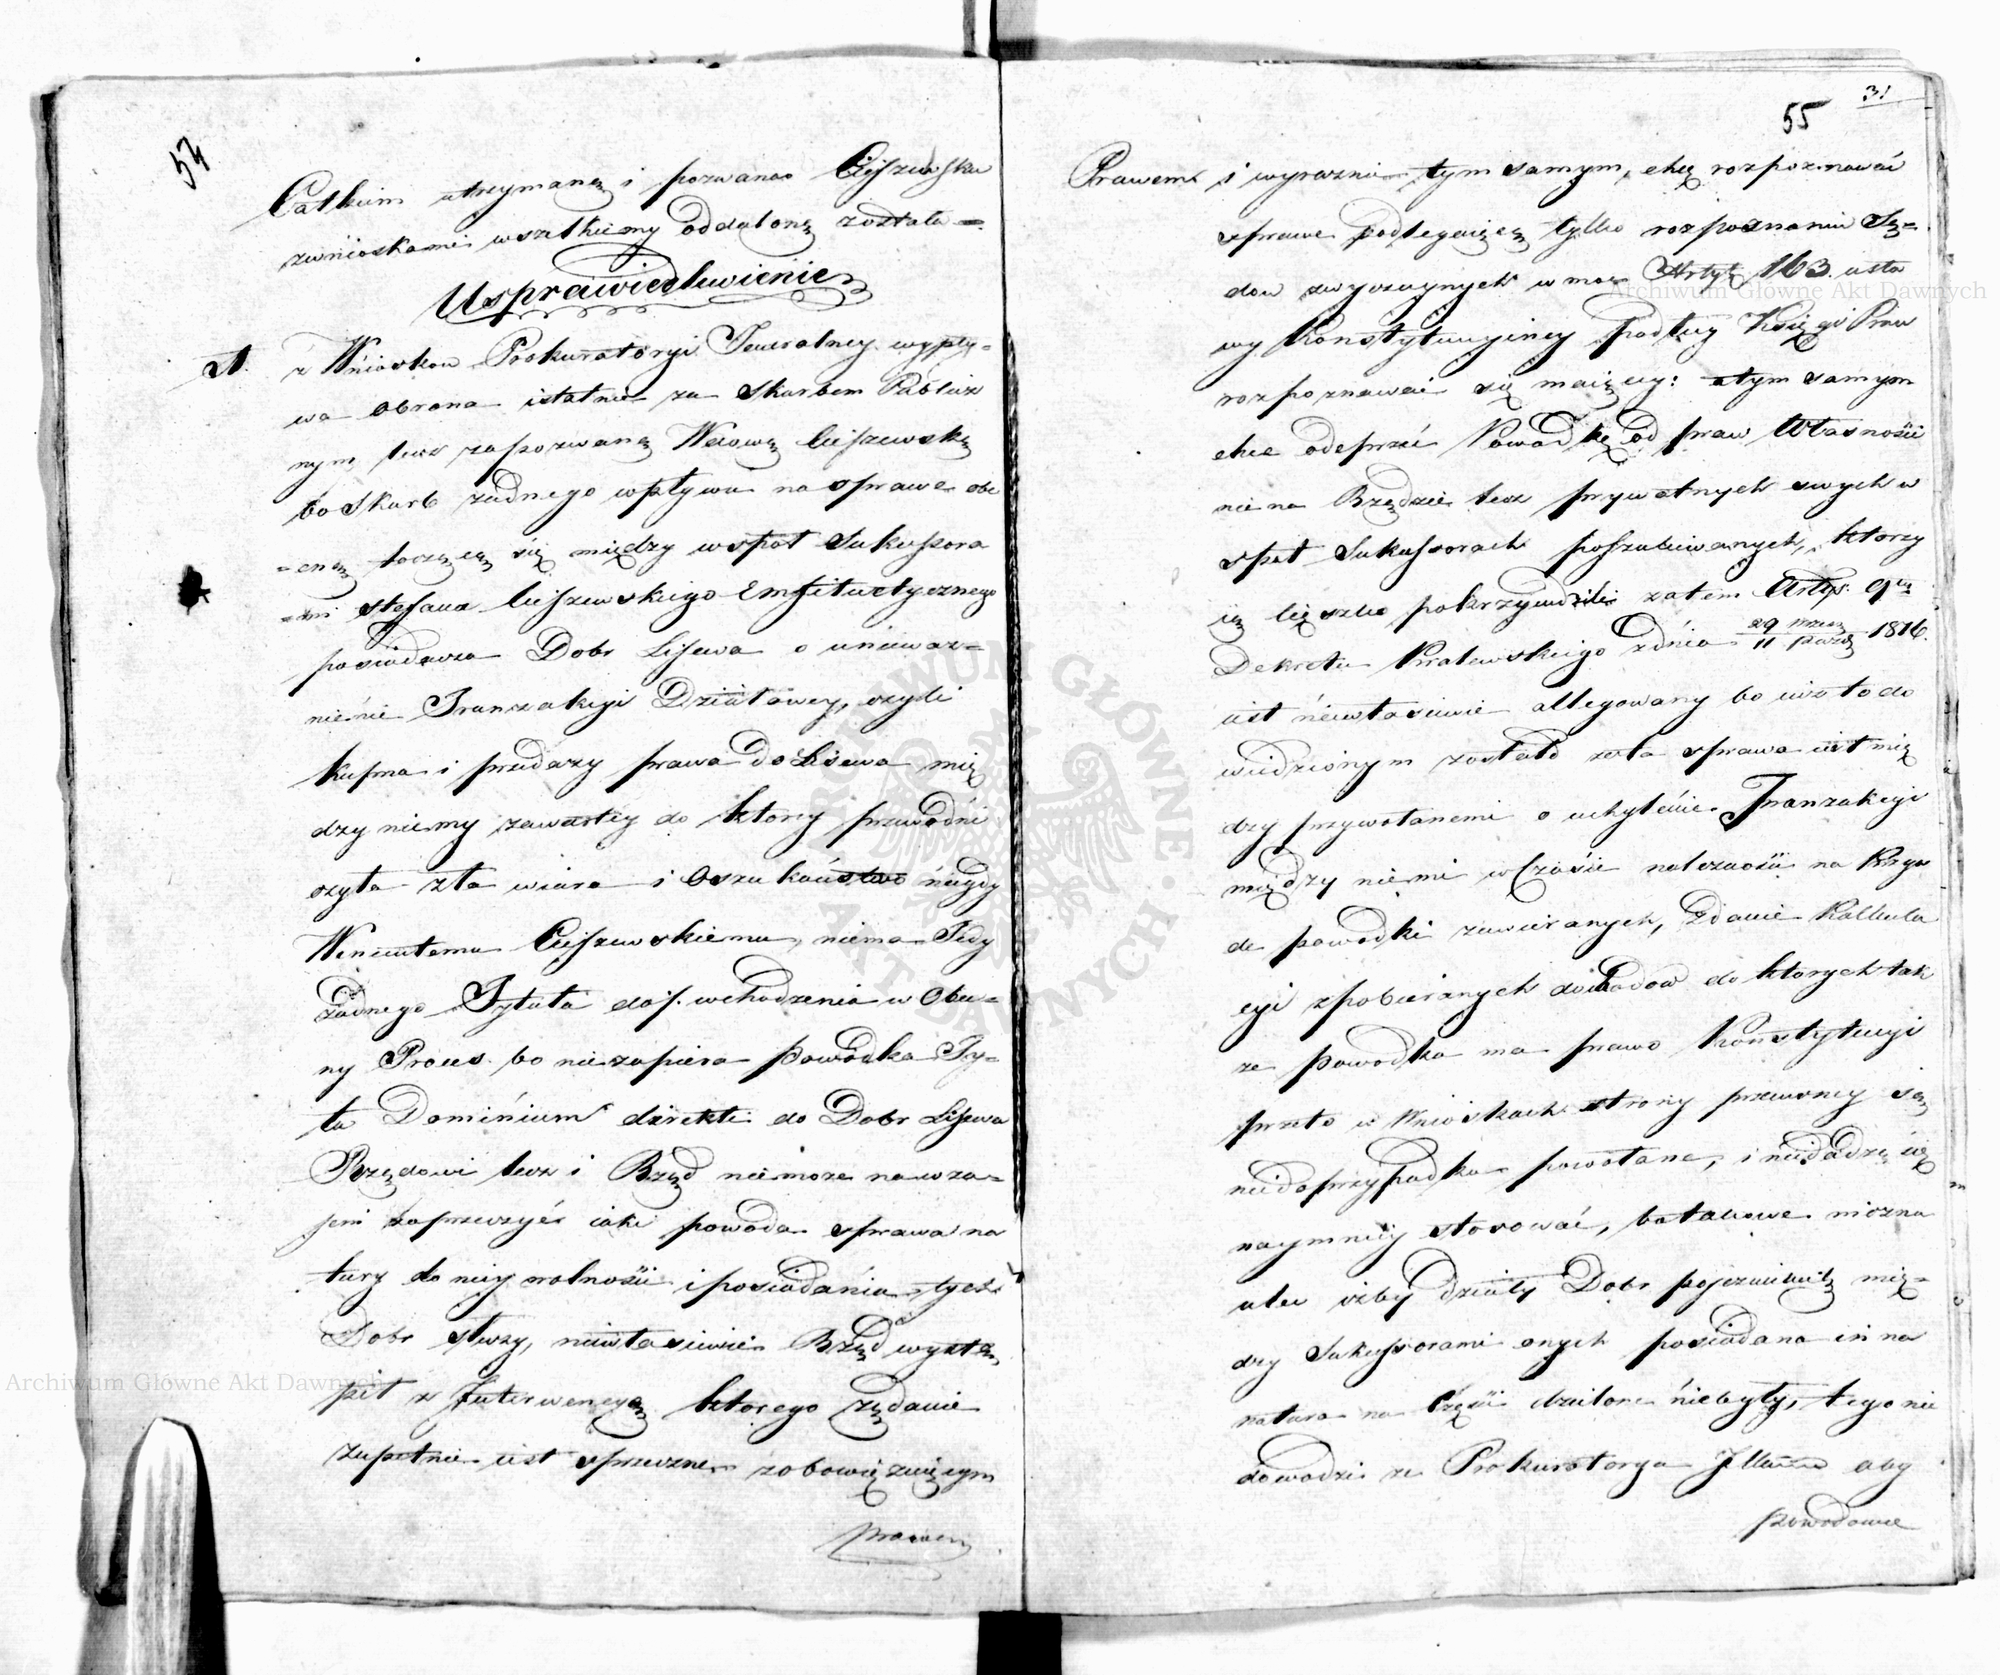 54
Całkiem utrzymaną i pozwana Cieszewska
z wnioskami wszelkiemy oddaloną została =
Usprawiedliwienie
A. z Wniosków Prokuratoryi Jeneralney wypły-
wa obrona istotnie za Skarbem Publicz
nym lecz zapozwaną Wdową Cieszewską
bo Skarb żadnego wpływu na sprawę obe
=cną toczącą się między współ Sukcessora
=mi Stefana Cieszewskiego Emfiteutycznego
posiadacza Dobr Lissewa o unieważ=
nienie Tranzakcyi Działowey, czyli
kupna i przedaży prawa do Lissewa mię
dzy niemy zawartey do ktorey przewodni
czyła zła wiara i Oszukaństwo niegdy
Wincentemu Cieszewskiemu, niema Tedy
żadnego Tytułu do wchodzenia w Obec-
ny Proces. bo niezapiera powodka Ty=
tu Dominium direkti do Dobr Lissewa
Rządowi lecz i Rząd niemoże nawza=
jem zaprzeczyć iaki powoda sprawa na
tury do niey wolności i posiadania tych
Dobr służy, niewłaściwie Rząd wystą
pił z Interwencyą ktorego żądanie
zupełnie iest sprzeczne z obowiązuiącym
prawem
31
55
Prawem i wyraznie tym samym, chcą rozpoznawać
sprawę podlegaiącą tylko rozpoznaniu Są=
dow zwyczaynych w moc Artyk 163. usta
wy Konstytucyiney podług Księgi Praw
rozpoznawać się maiący: a tym samym
chce odeprzeć Powodkę od praw Własności
nie na Rządzie lecz prywatnych swych w
spół Sukcessorach poszukiwanych, ktorzy
ią cięszko pokrzywdzili zatem Artyk: 9ty
Dekretu Krolewskiego z dnia 29 Wrześ 11 Paźdz 1816.
iest niewłaściwie allegowany bo iuż to do
wiedzionym zostało że ta sprawa iest mię
dzy prywatanemi o uchylenie Tranzakcyi
między niemi w Czasie należności na Krzyw
de powodki zawieranych, Zdanie Kalkula
cyi z pobieranych dochodow do ktorych tak
że powodka ma prawo Konstytucyi
przeto w Wnioskach strony przeciwney są
nie do przypadku powołane, i niedadzą się
naymniey stosować, bo takowe można
ulec iżby działy Dobr pojezuickich mię=
dzy Sukcessorami onych posiadana in na
tura na części dzielone niebyły, tego nie
dowodzi że Prokuratorya aby
powodowie